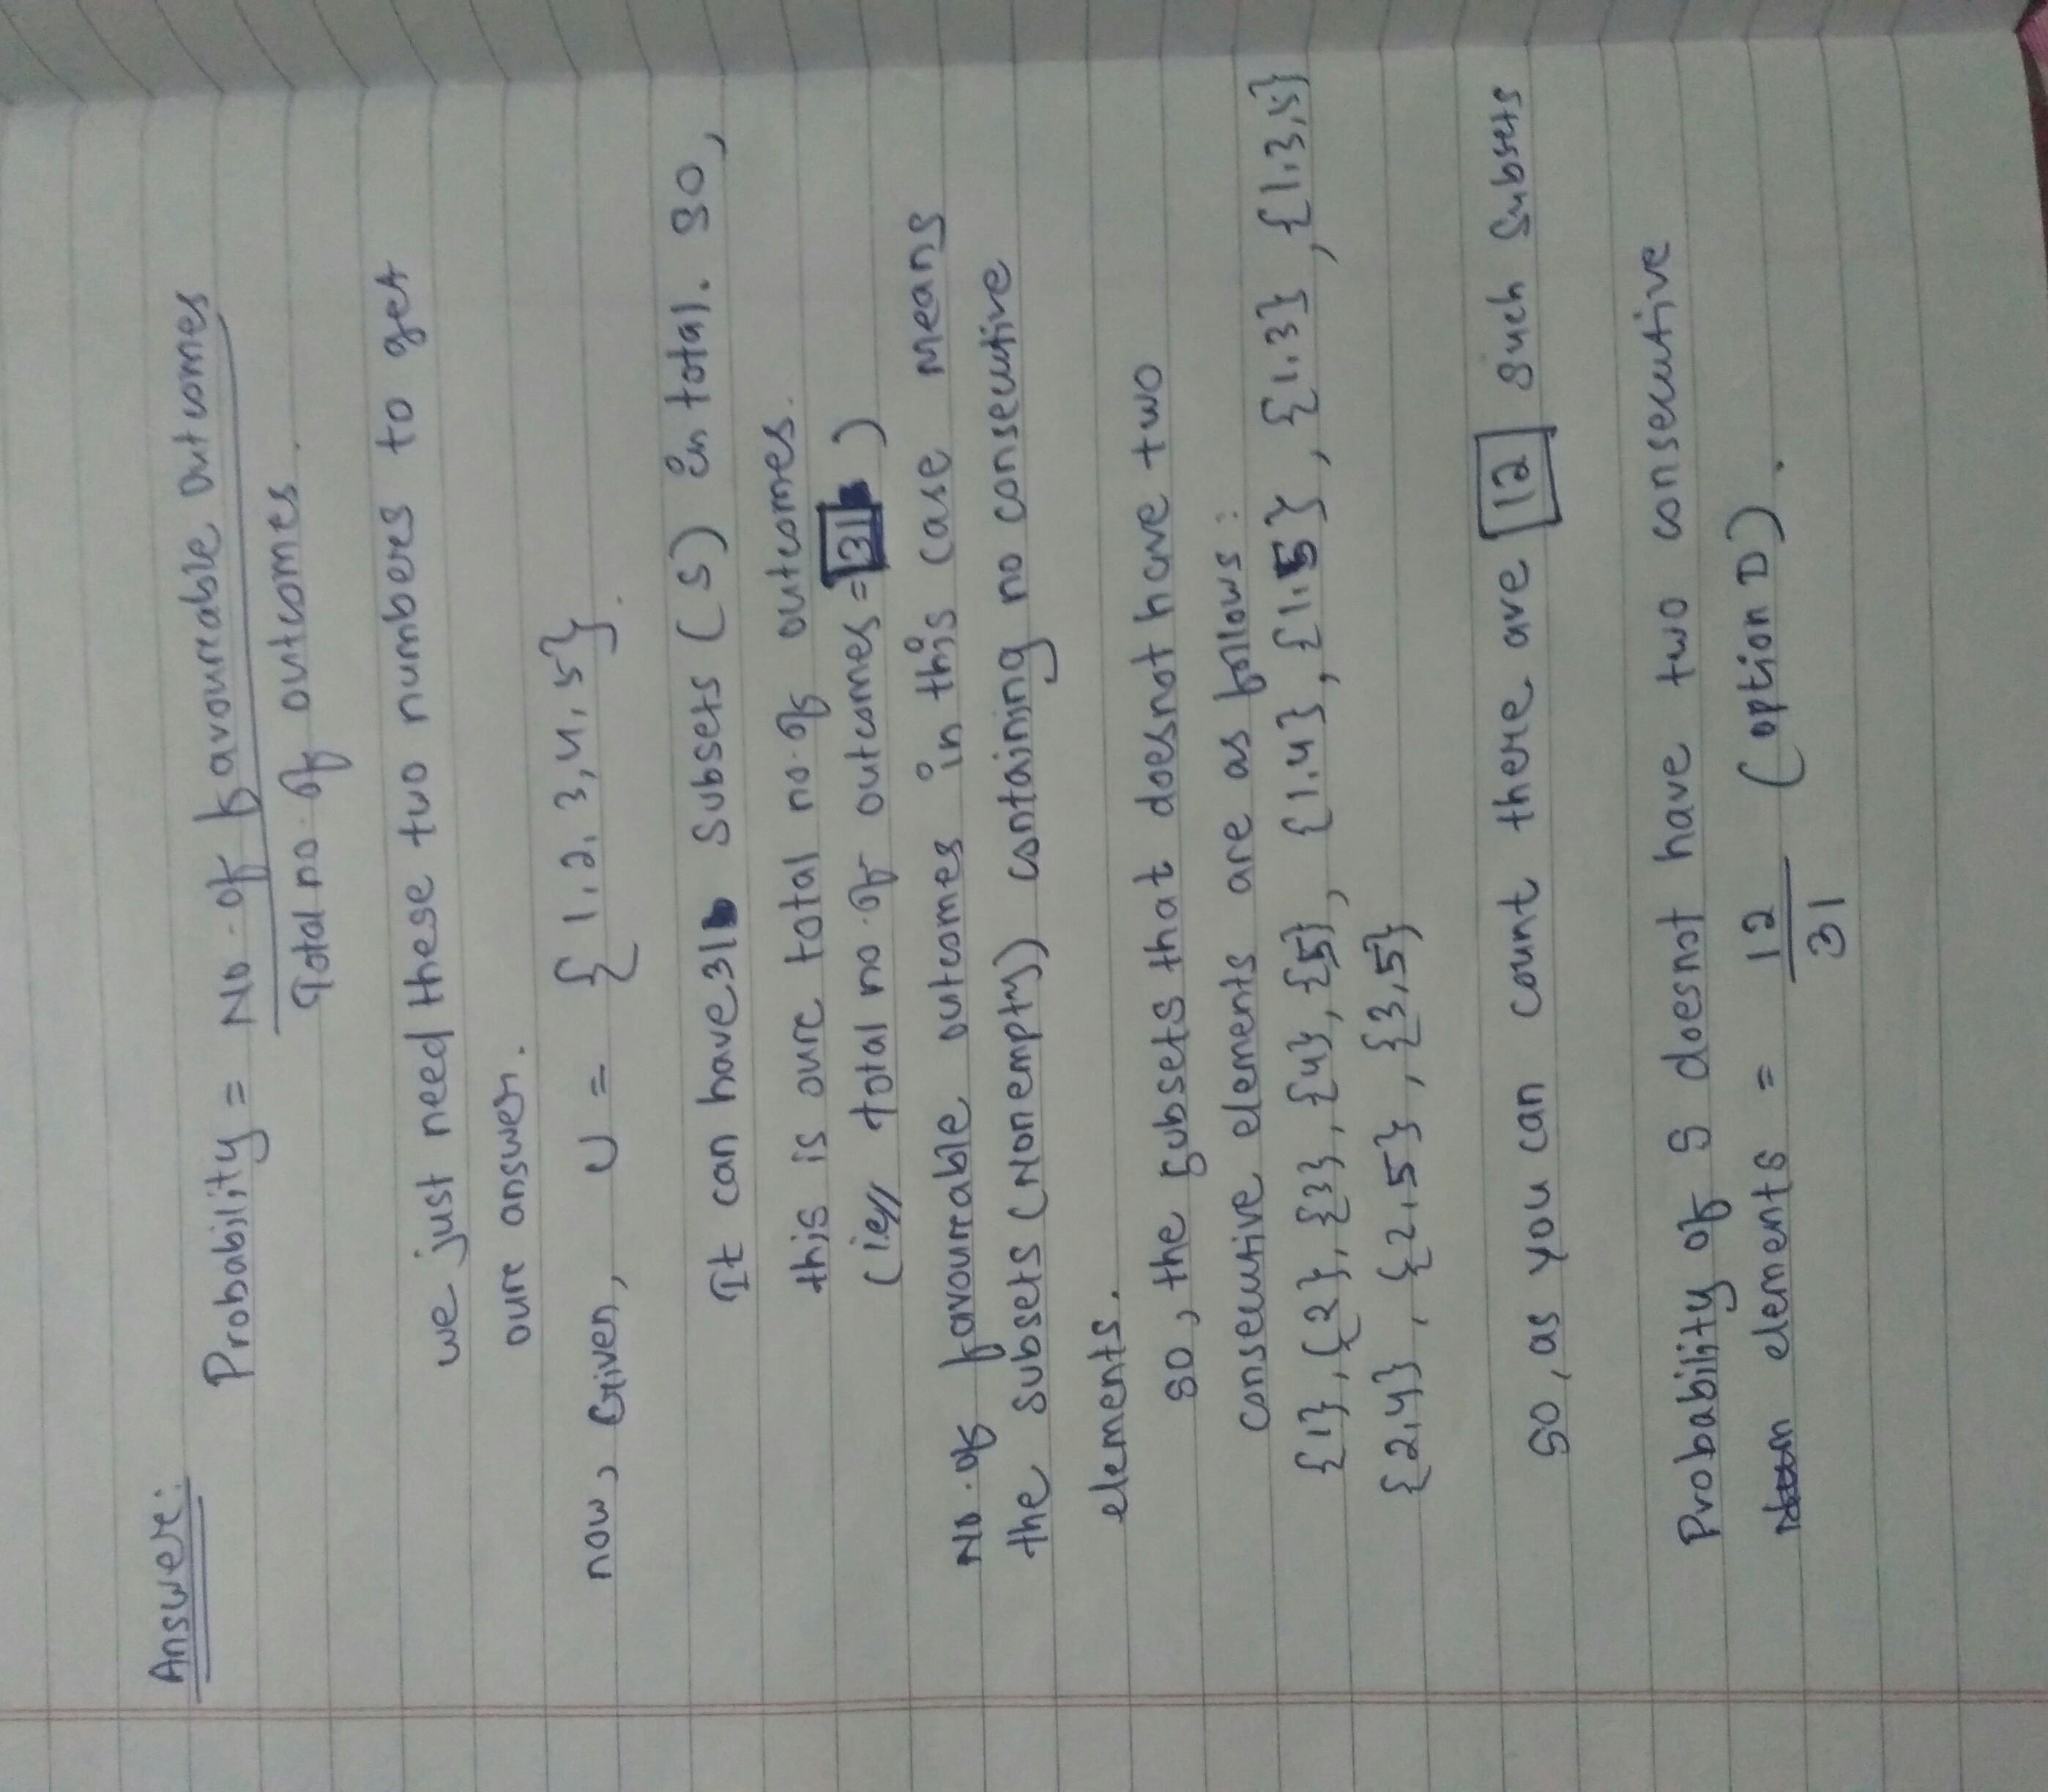 Answer:
Probability = No. of favourable outcomes
Total no. of outcomes.
we just need these two numbers to get
our answer.
now, Given, U = { 1, 2, 3, 4, 5}.
It can have 31 subsets (S) in total. So,
this is our total no. of outcomes.
(ie// total no. of outcomes = 31 )
No. of favourable outcomes in this case means
the subsets (Nonempty) containing no consecutive
elements.
So, the subsets that doesnot have two
consecutive elements are as follows:
{1}, {2}, {3}, {4}, {5}, {1,4}, {1,5}, {1,3}, {1,3,5}
{2,4}, {2,5}, {3,5}
So, as you can count there are 12 such subsets
Probability of S doesnot have two consecutive
elements = 12/31 (option D).